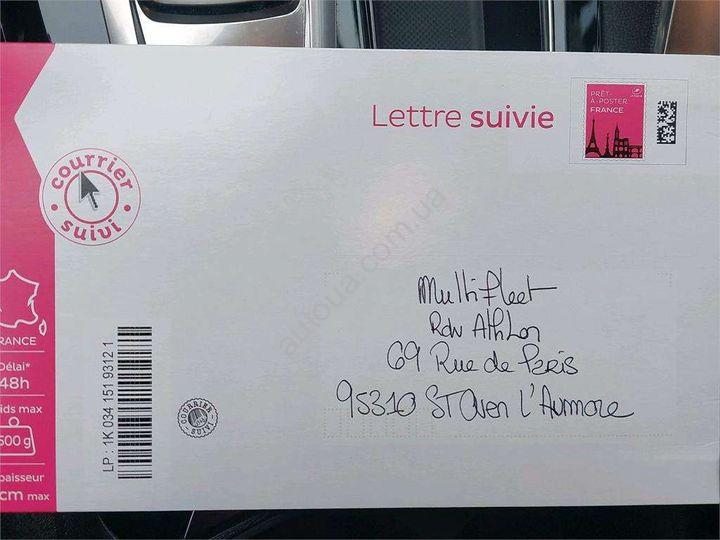 Lettre suivie
PRÊT-
À-POSTER
FRANCE
courrier
suivi
Multifleet
Rdv Athlon
69 Rue de Peris
95310 St Ouen L'Aumore
RANCE
Délai*
48h
ids max
500 g
paisseur
cm max
LP : 1K 034 151 9312 1
COURRIER
SUIVI
autoua.com.ua